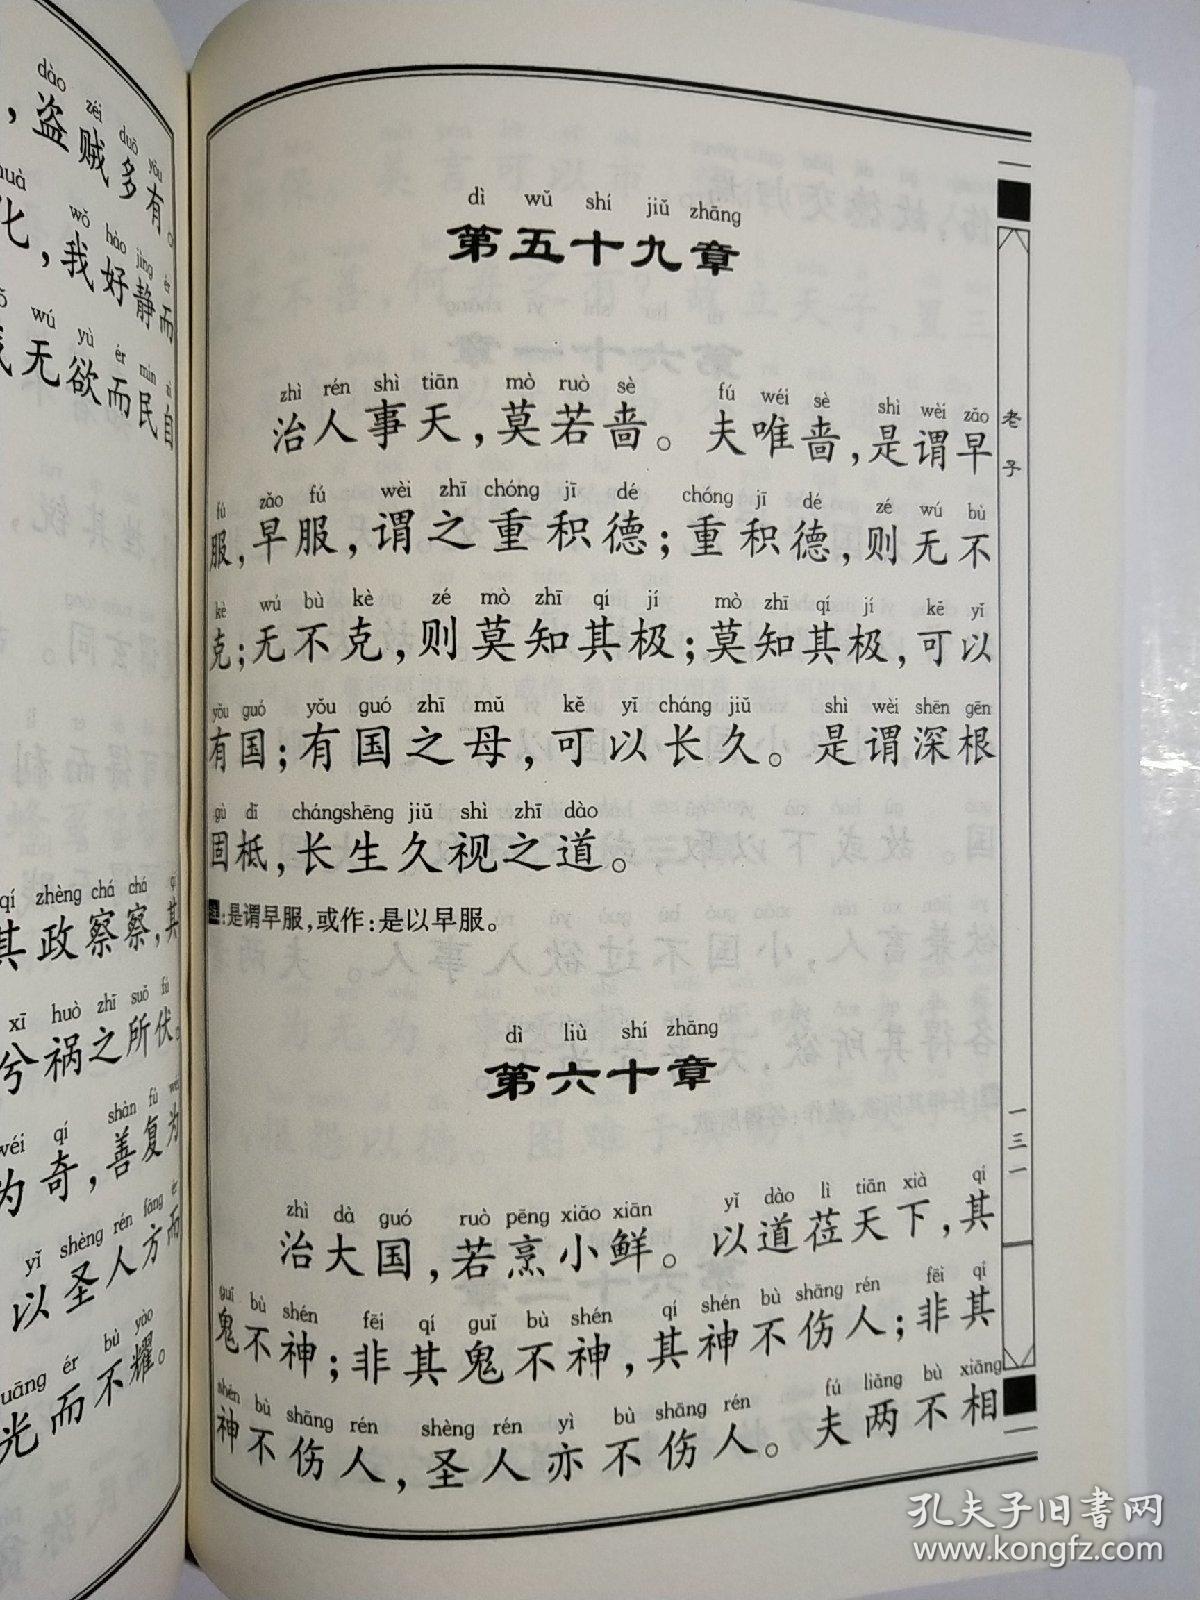 dào zéi duō yǒu
,盗贼多有。
huà wǒ hào jìng ér
化,我好静而
wú yù ér mín zì
无欲而民自
qí zhèng chá chá qí
其政察察,其
xī huò zhī suǒ fú
兮祸之所伏。
wéi qí shàn fù wéi
为奇,善复为
yǐ shèng rén fāng ér
以圣人方而
guāng ér bù yào
光而不耀。
dì wǔ shí jiǔ zhāng
第五十九章
zhì rén shì tiān mò ruò sè fú wéi sè shì wèi zǎo
治人事天,莫若啬。夫唯啬,是谓早
fú zǎo fú wèi zhī chóng jī dé chóng jī dé zé wú bù
服,早服,谓之重积德;重积德,则无不
kè wú bù kè zé mò zhī qí jí mò zhī qí jí kě yǐ
克;无不克,则莫知其极;莫知其极,可以
yǒu guó yǒu guó zhī mǔ kě yǐ cháng jiǔ shì wèi shēn gēn
有国;有国之母,可以长久。是谓深根
gù dǐ chángshēng jiǔ shì zhī dào
固柢,长生久视之道。
:是谓早服,或作:是以早服。
dì liù shí zhāng
第六十章
zhì dà guó ruò pēng xiǎo xiān yǐ dào lì tiān xià qí
治大国,若烹小鲜。以道莅天下,其
guǐ bù shén fēi qí guǐ bù shén qí shén bù shāng rén fēi qí
鬼不神;非其鬼不神,其神不伤人;非其
shén bù shāng rén shèng rén yì bù shāng rén fú liǎng bù xiāng
神不伤人,圣人亦不伤人。夫两不相
老子
一三一
孔夫子旧书网
www.kongfz.com